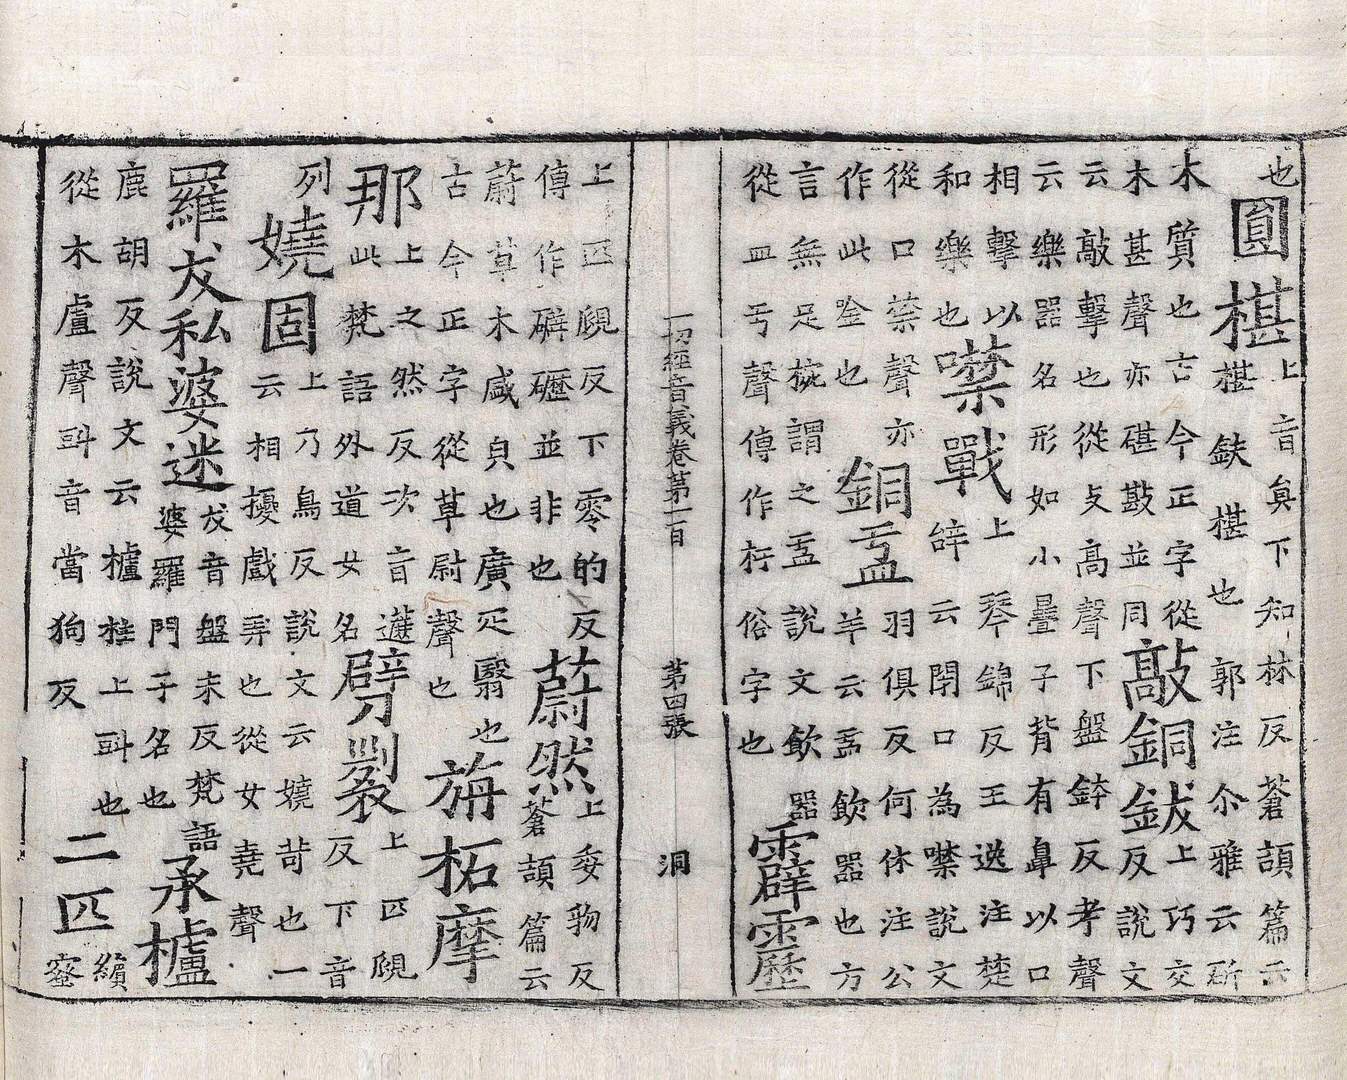 也
圓椹
上音眞下知林反蒼頡篇云
椹鈇椹也郭注尒雅云斫
木質也古今正字從
木甚聲亦碪戡並同
敲銅鈸
上巧交
反說文
云敲擊也從攴高聲下盤鉢反考聲
云樂器名形如小疊子背有鼻以口
相擊以
和樂也
噤戰
上琴錦反王逸注楚
辝云閉口為噤說文
從口禁聲亦
作此唫也
銅盂
羽俱反何休注公
羊云盂飲器也方
言無足椀謂之盂說文飲器
從皿亐聲傳作杅俗字也
霹靂
一切經音義卷第一百 第四張 洞
上匹覞反下零的反
傳作礔礰並非也
蔚然
上委物反
蒼頡篇云
蔚草木咸皃也廣疋翳也
古今正字從草尉聲也
旃柘摩
那
上之然反次音遮
此梵語外道女名
劈裂
上匹覞
反下音
列
嬈固
上乃鳥反說文云嬈苛也一
云相擾戲弄也從女堯聲
羅犮私婆迷
犮音盤末反梵語
婆羅門子名也
承櫨
鹿胡反說文云櫨柱上枓也
從木盧聲枓音當狗反
二匹
繽
蜜